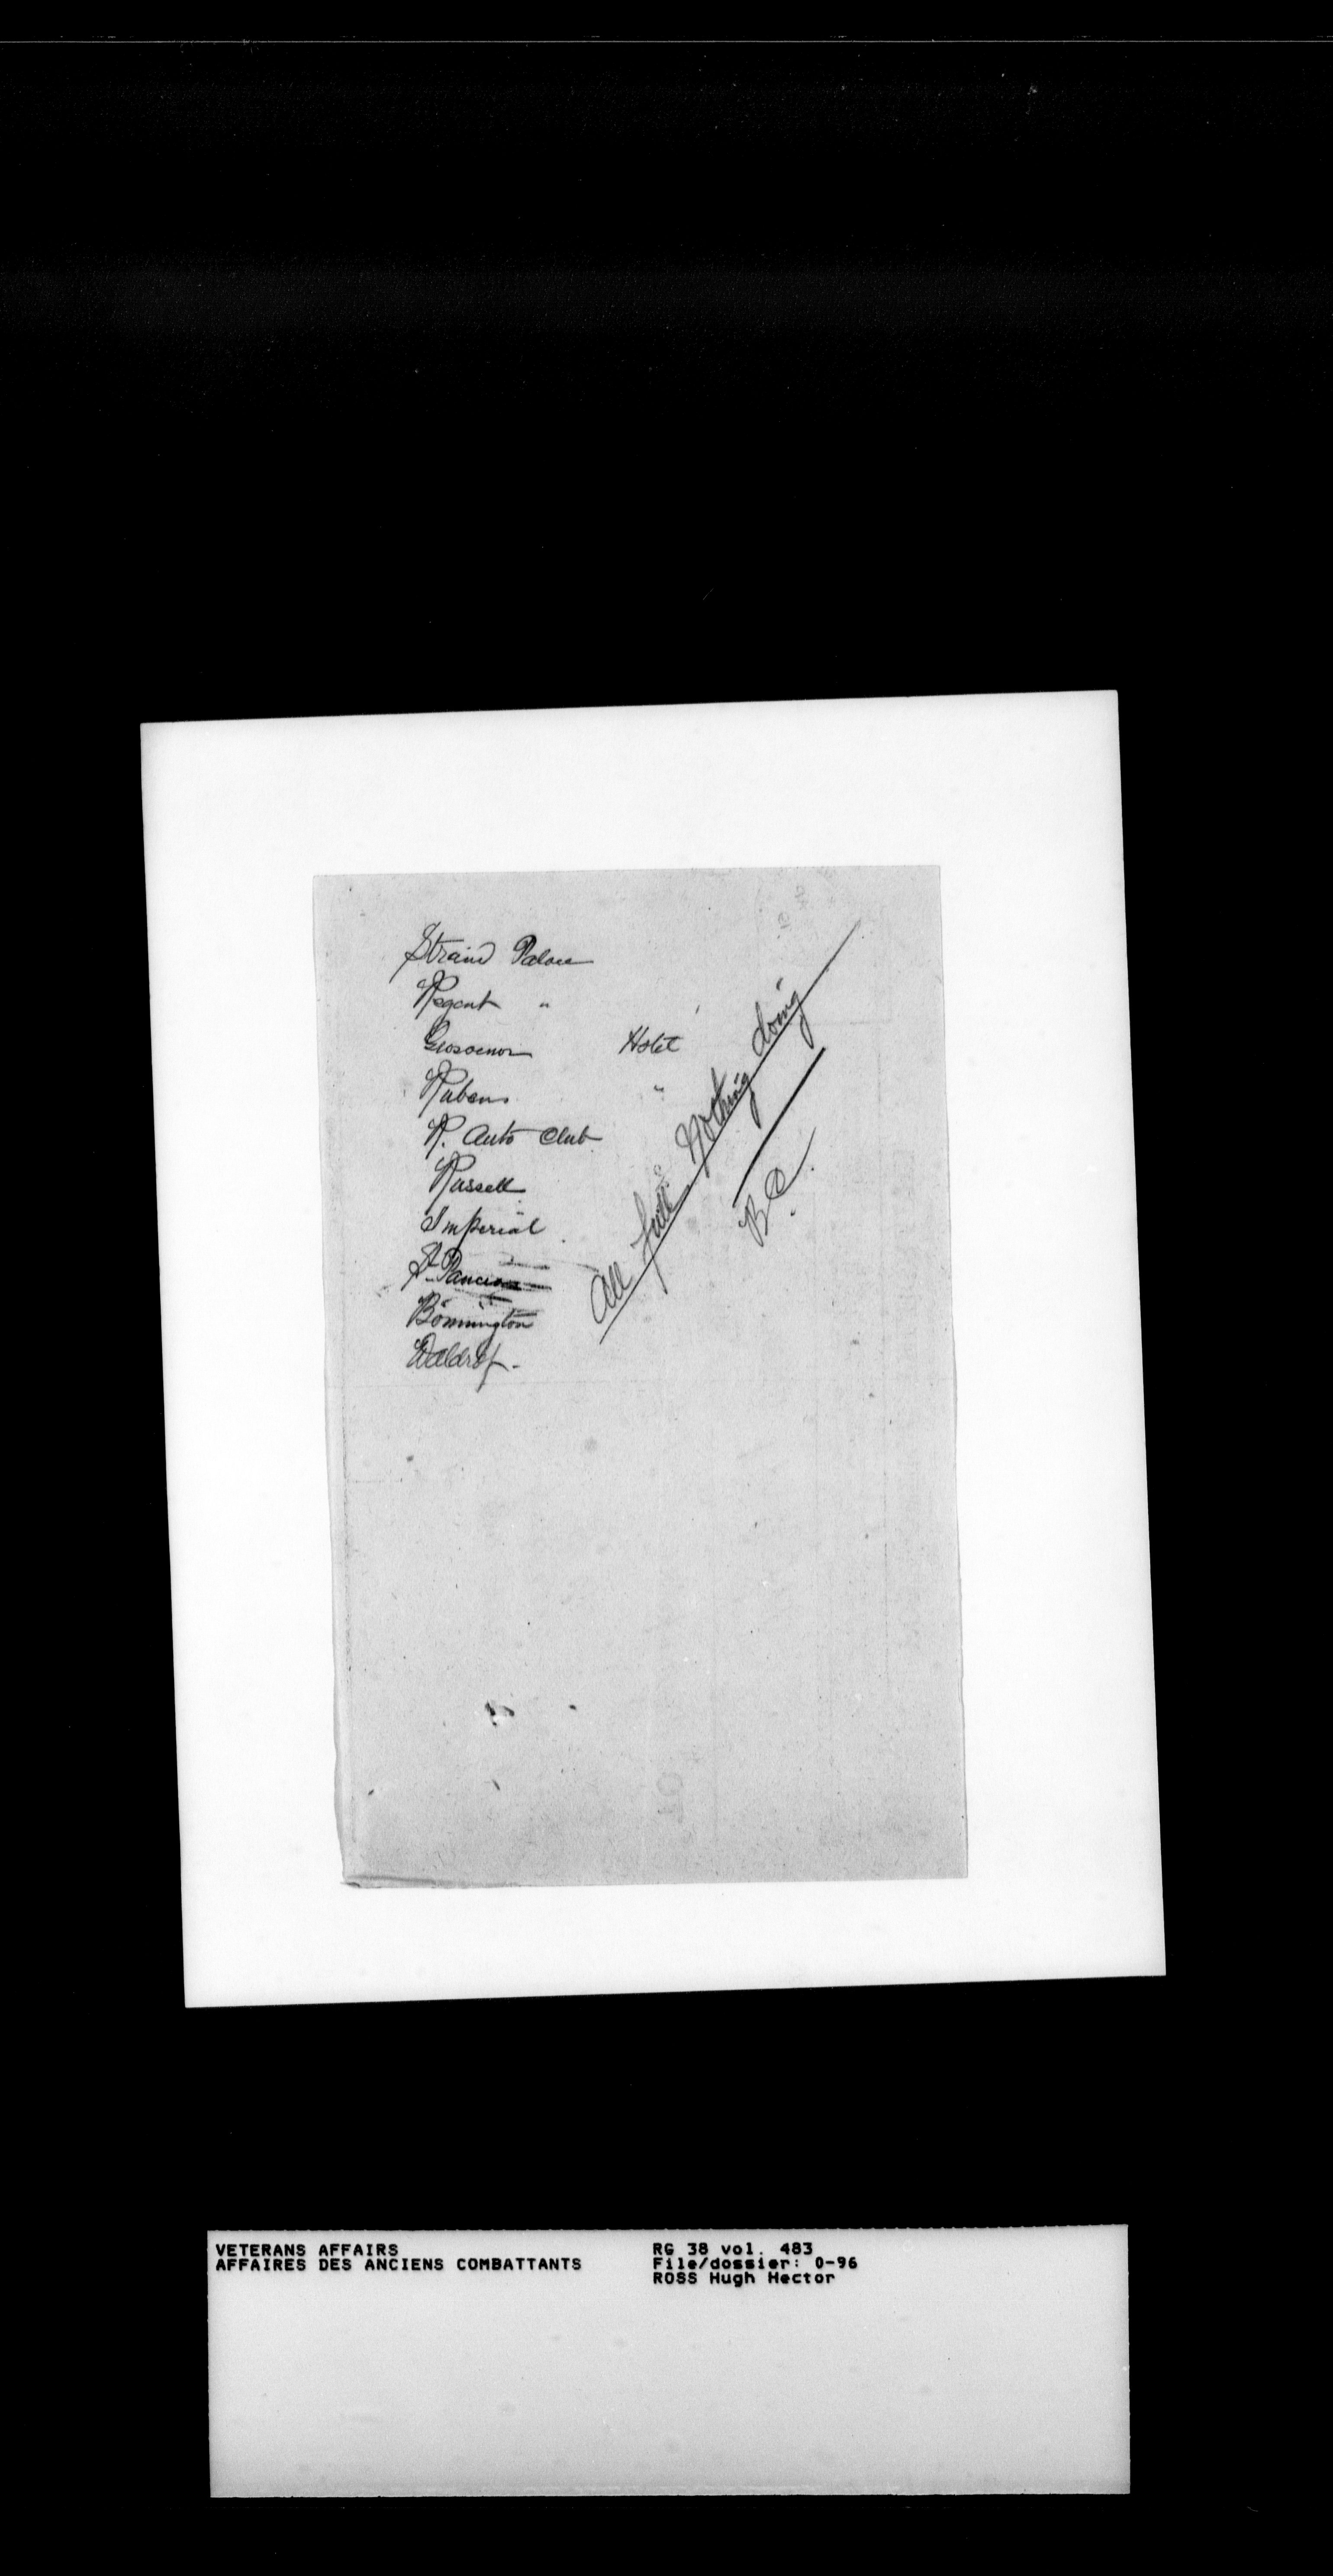 Strand Palace
Regent "
Grosvenor Hotel
Rubens "
R. Auto Club
Russell
Imperial
St. Pancras
Bonnington
Waldorf.
All full Nothing doing
B.C.
VETERANS AFFAIRS
AFFAIRES DES ANCIENS COMBATTANTS
RG 38 vol. 483
File/dossier: 0-96
ROSS Hugh Hector